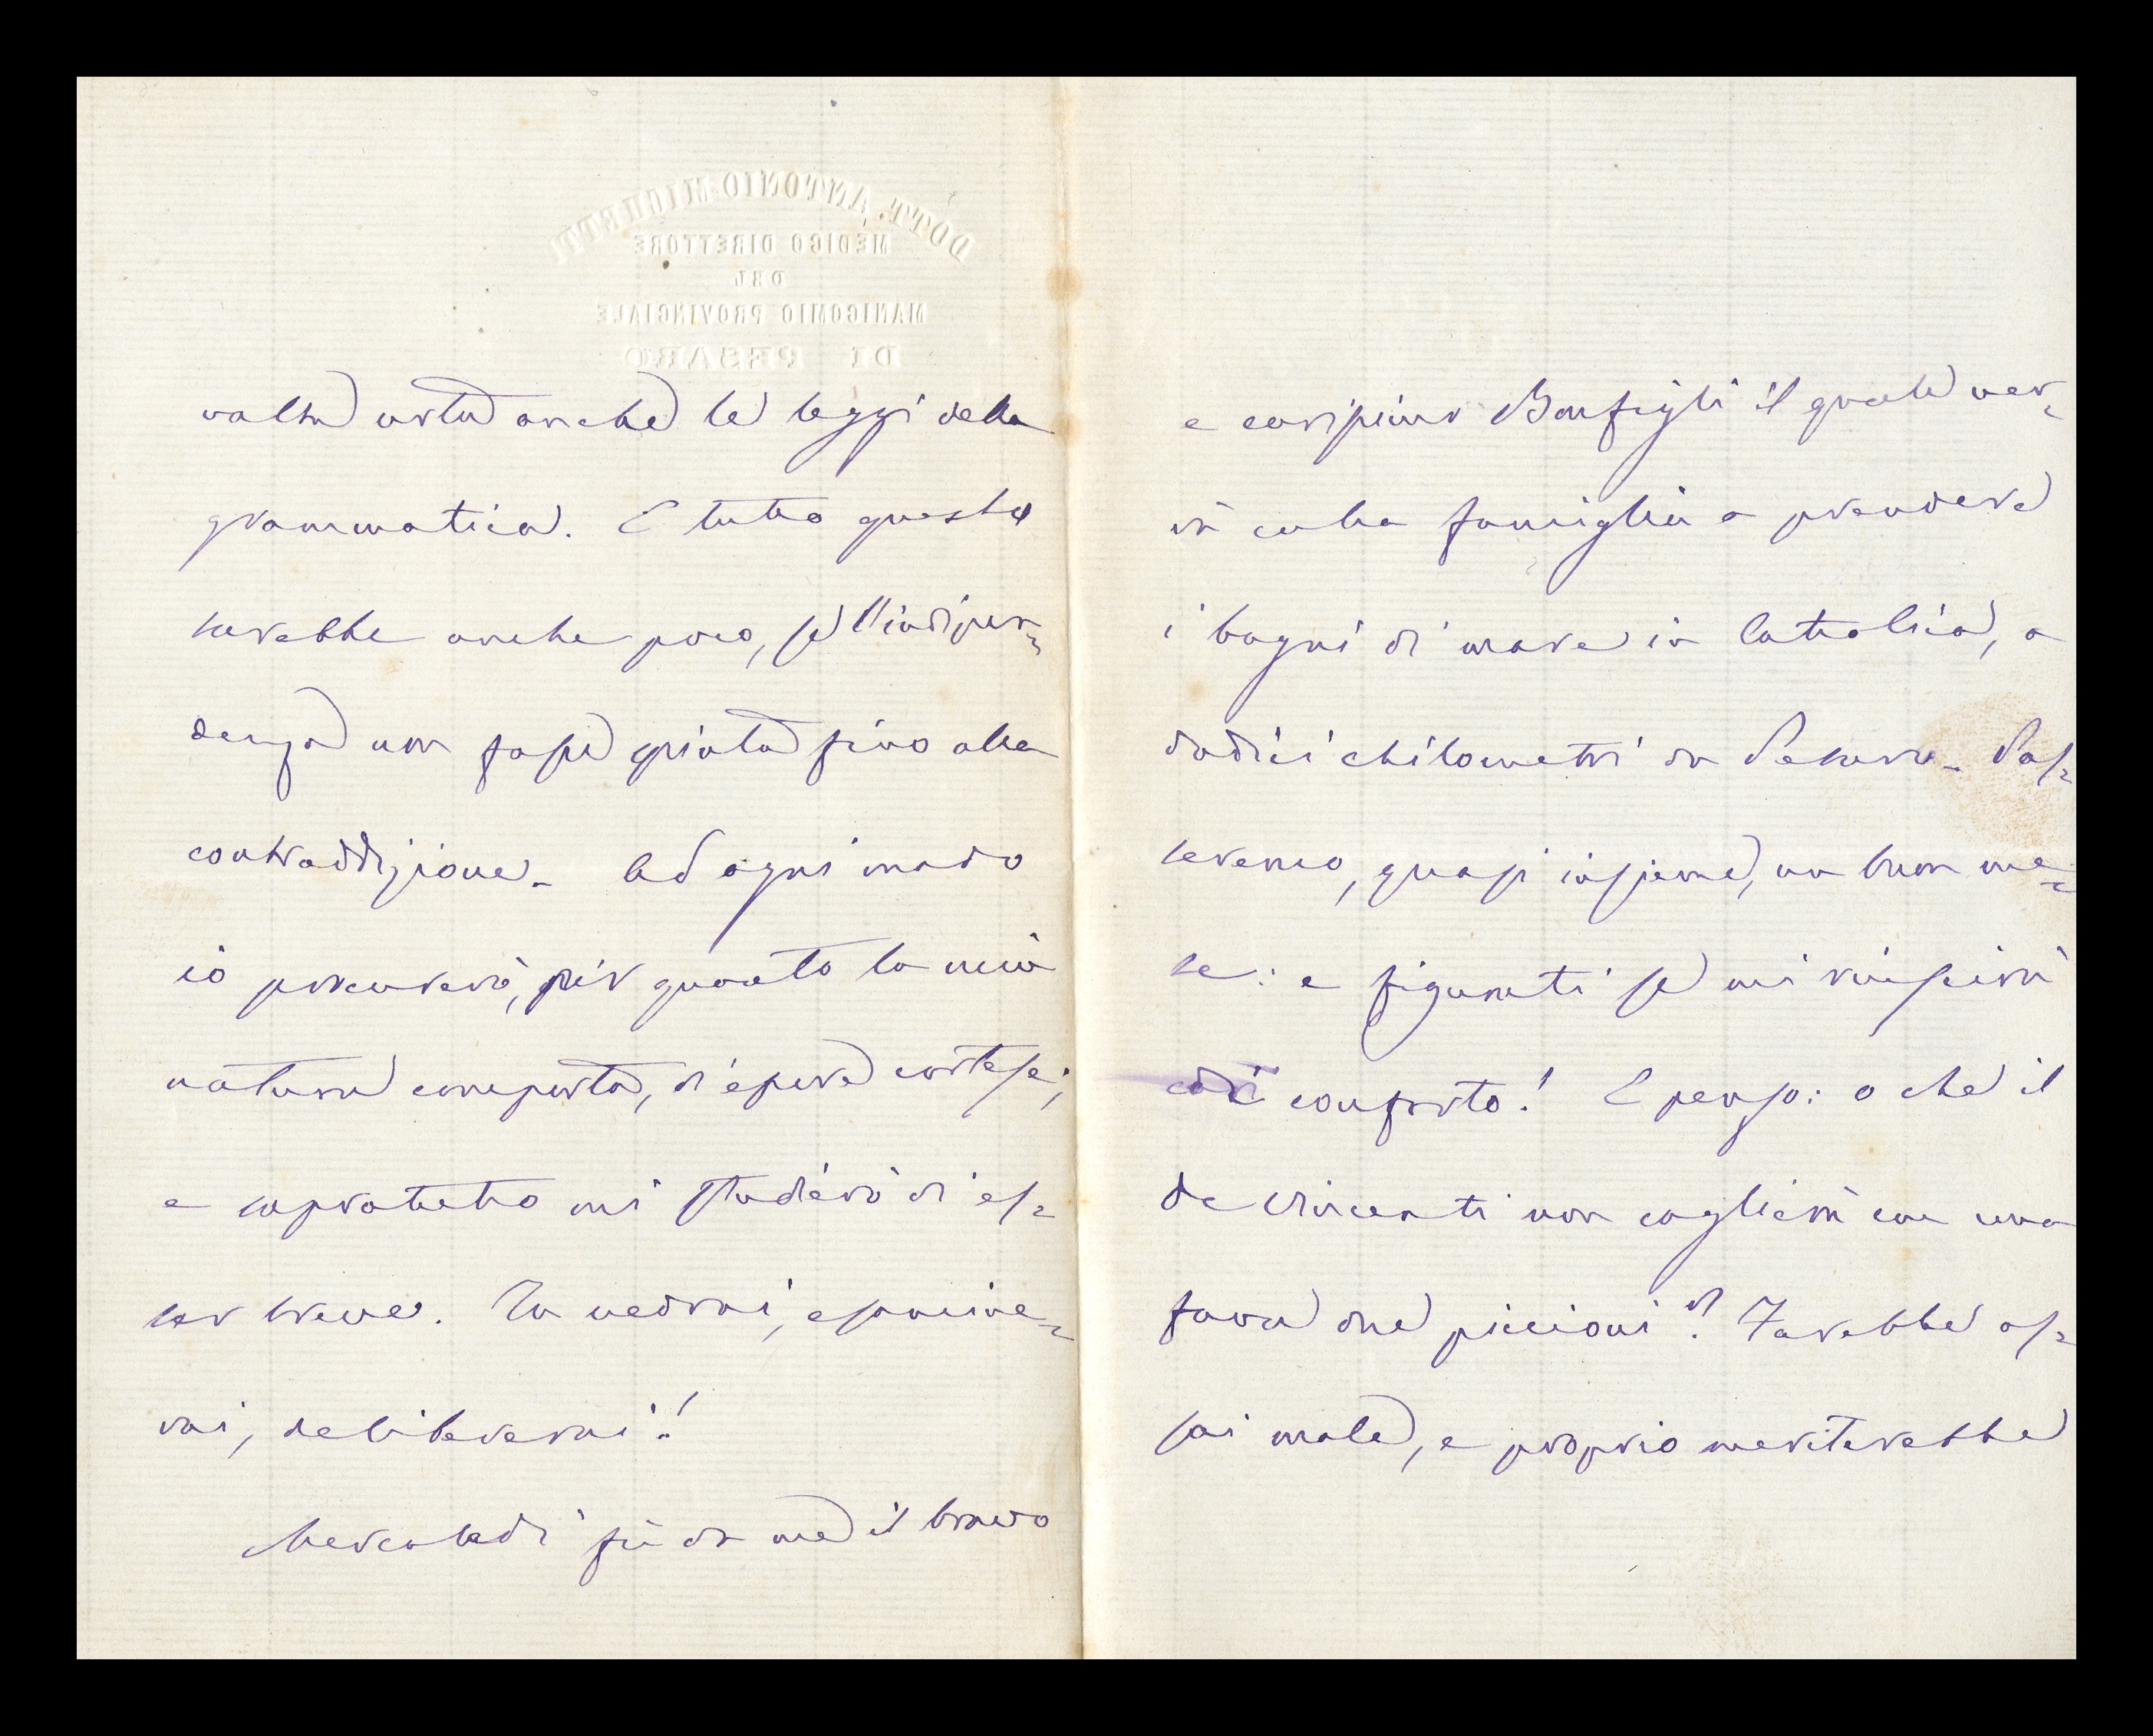 DOTT. ANTONIO MICHETTI
MEDICO DIRETTORE
DEL
MANICOMIO PROVINCIALE
DI PESARO
volta urta anche le leggi della
grammatica. E tutto questo
sarebbe anche poco, se l'indipen-
denza non fosse spinta fino alla
contraddizione. Ad ogni modo
io procurerò, per quanto la mia
natura comporta, d'essere cortese;
e sopratutto mi studierò di es-
ser breve. Tu vedrai, esamine-
rai, delibererai!
Mercoledì fu da me il bravo
e carissimo Bonfigli il quale ver-
rà colla famiglia a prendere
i bagni di mare in Cattolica, a
dodici chilometri da Pesaro. Pas-
seremo, quasi insieme, un buon me-
se: e figurati se mi riuscirà
di conforto! E penso: o che il
de Vincenti non coglierà con una
fava due piccioni? Farebbe as-
sai male, e proprio meriterebbe